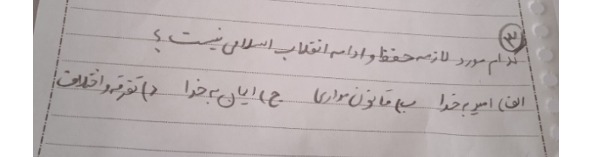 ۳
کدام مورد لازمه حفظ و ادامه انقلاب اسلامی نیست؟
الف) امید به خدا ب) قانون مداری ج) ایمان به خدا د) تفرقه و اختلاف